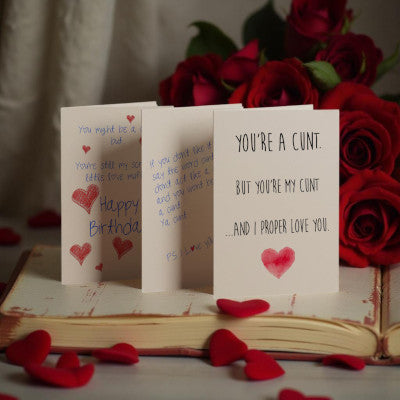 You might be a
but
You're still my
little love
Happy
Birthday
If you don't like it
say the word cunt
don't act like a
and you won't be
a cunt
Ya cunt
P.S. I Love
YOU'RE A CUNT.
BUT YOU'RE MY CUNT
...AND I PROPER LOVE YOU.